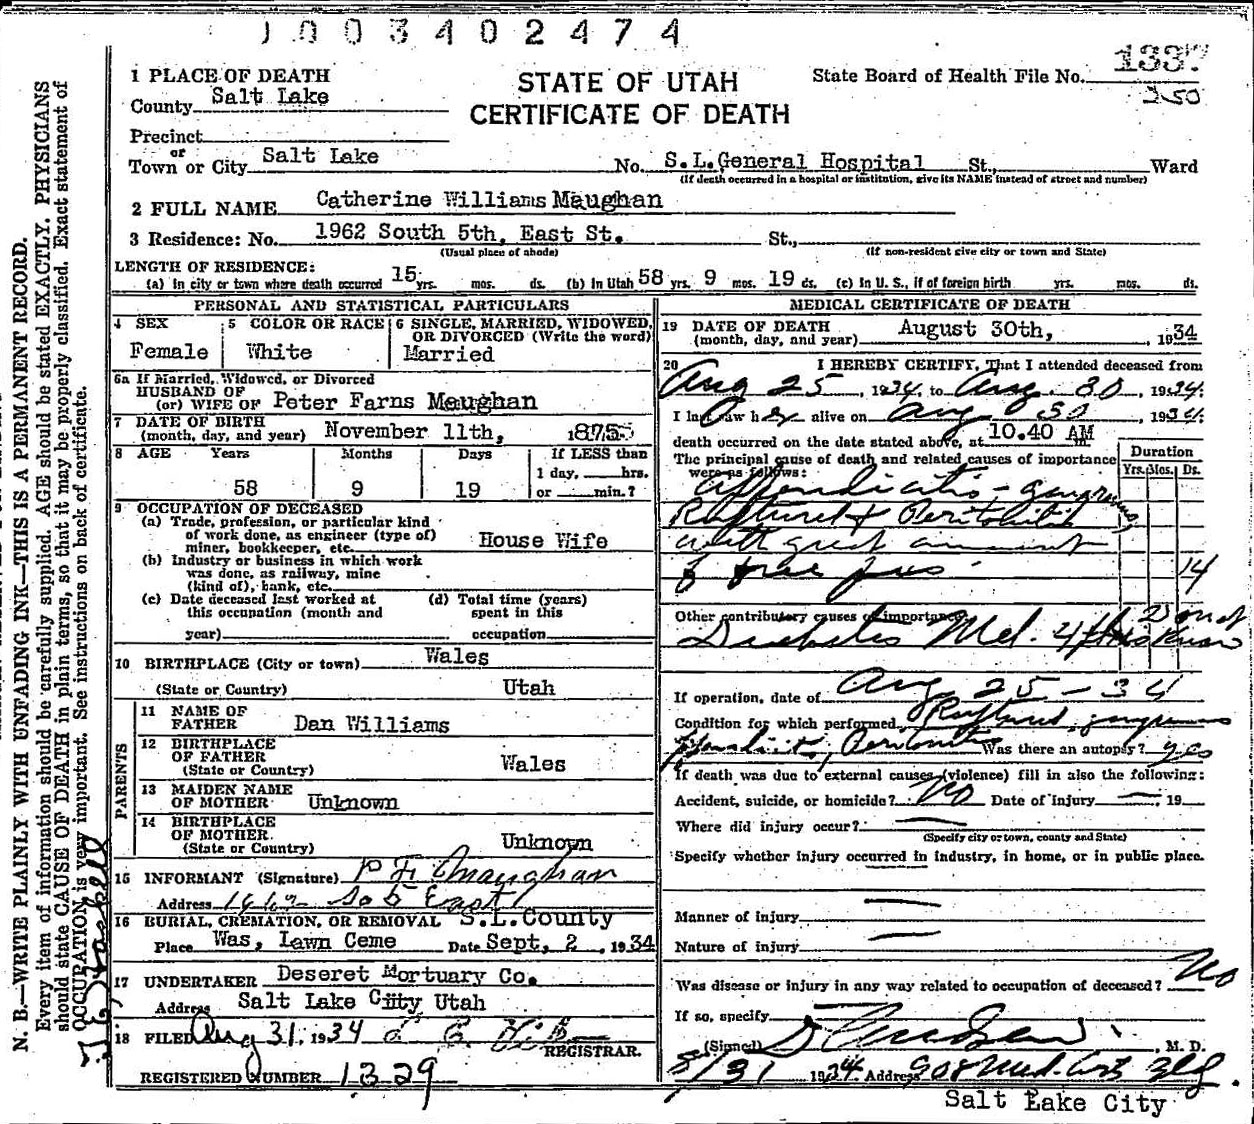 1003402474
STATE OF UTAH
CERTIFICATE OF DEATH
State Board of Health File No. 1337
250
1 PLACE OF DEATH
County Salt Lake
Precinct
or
Town or City Salt Lake No. S.L.General Hospital St., Ward
(If death occurred in a hospital or institution, give its NAME instead of street and number)
2 FULL NAME Catherine Williams Maughan
3 Residence: No. 1962 South 5th, East St. St.,
(Usual place of abode) (If non-resident give city or town and State)
LENGTH OF RESIDENCE:
(a) In city or town where death occurred 15 yrs. mos. ds. (b) In Utah 58 yrs. 9 mos. 19 ds. (c) In U. S., if of foreign birth yrs. mos. ds.
PERSONAL AND STATISTICAL PARTICULARS
4 SEX
Female
5 COLOR OR RACE
White
6 SINGLE, MARRIED, WIDOWED, OR DIVORCED (Write the word)
Married
6a If Married, Widowed, or Divorced
HUSBAND OF
(or) WIFE OF Peter Farns Maughan
7 DATE OF BIRTH
(month, day, and year) November 11th, 1875
8 AGE Years Months Days If LESS than
1 day, hrs.
58 9 19 or min.?
9 OCCUPATION OF DECEASED
(a) Trade, profession, or particular kind
of work done, as engineer (type of)
miner, bookkeeper, etc. House Wife
(b) Industry or business in which work
was done, as railway, mine
(kind of), bank, etc.
(c) Date deceased last worked at
this occupation (month and
year)
(d) Total time (years)
spent in this
occupation
10 BIRTHPLACE (City or town) Wales
(State or Country) Utah
PARENTS
11 NAME OF
FATHER Dan Williams
12 BIRTHPLACE
OF FATHER
(State or Country) Wales
13 MAIDEN NAME
OF MOTHER Unknown
14 BIRTHPLACE
OF MOTHER
(State or Country) Unknown
15 INFORMANT (Signature) P F Maughan
Address 1962 So 5 East
16 BURIAL, CREMATION, OR REMOVAL S.L.County
Place Was, Lawn Ceme Date Sept, 2, 1934
17 UNDERTAKER Deseret Mortuary Co.
Address Salt Lake City Utah
18 FILED Aug 31, 1934
REGISTRAR.
REGISTERED NUMBER 1329
MEDICAL CERTIFICATE OF DEATH
19 DATE OF DEATH
(month, day, and year) August 30th, , 1934
20 I HEREBY CERTIFY, That I attended deceased from
Aug 25, 1934, to Aug. 30, 1934.
I last saw her alive on Aug 30 1934.
death occurred on the date stated above, at 10.40 AM m.
The principal cause of death and related causes of importance
were as follows:
Duration
Yrs. Mos. Ds.
Appendicitis - gangrenous
Ruptured & Peritonitis
with great amount
of free pus - 14
Other contributory causes of importance
Diabetes Mel. Do not
know
If operation, date of Aug 25 - 34
Condition for which performed Ruptured gangrenous
Appendicitis, Peritonitis Was there an autopsy? yes
If death was due to external causes (violence) fill in also the following:
Accident, suicide, or homicide? No Date of injury — , 19
Where did injury occur? —
(Specify city or town, county and State)
Specify whether injury occurred in industry, in home, or in public place.
—
Manner of injury —
Nature of injury —
Was disease or injury in any way related to occupation of deceased? No
If so, specify
(Signed) , M. D.
8/31 1934 Address 908 Med. Arts Blg.
Salt Lake City
N. B.—WRITE PLAINLY WITH UNFADING INK—THIS IS A PERMANENT RECORD.
Every item of information should be carefully supplied. AGE should be stated EXACTLY. PHYSICIANS
should state CAUSE OF DEATH in plain terms, so that it may be properly classified. Exact statement of
OCCUPATION is very important. See instructions on back of certificate.